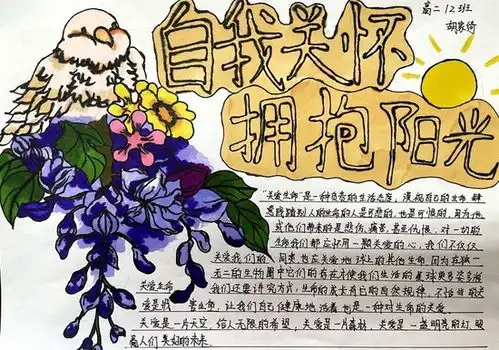 高二12班
胡家倚
自我关怀
拥抱阳光
"关爱生命"是一种负责的生活态度，漠视自己的生命肆
意践踏别人的生命的人是可悲的，也是可恨的，因为他
或他们带来的是悲伤，痛苦，甚至仇恨，对一切的
生物我们都应怀有一颗关爱的心，我们不仅仅
关爱我们的同类也应关爱地球上的其他生命，因为在独一
无二的生物圈中它们的存在才使我们生活的星球更多姿多彩
关爱生命 我们还要讲究方式；生命的成长有它的自然规律，不恰当的关
爱是我 害生命，让我们自己健康地活着也是一种对生命的关爱。
关爱是一片天空，给人无限的希望，关爱是一片森林，关爱是一盏明亮的灯，照
亮人们美好的未来